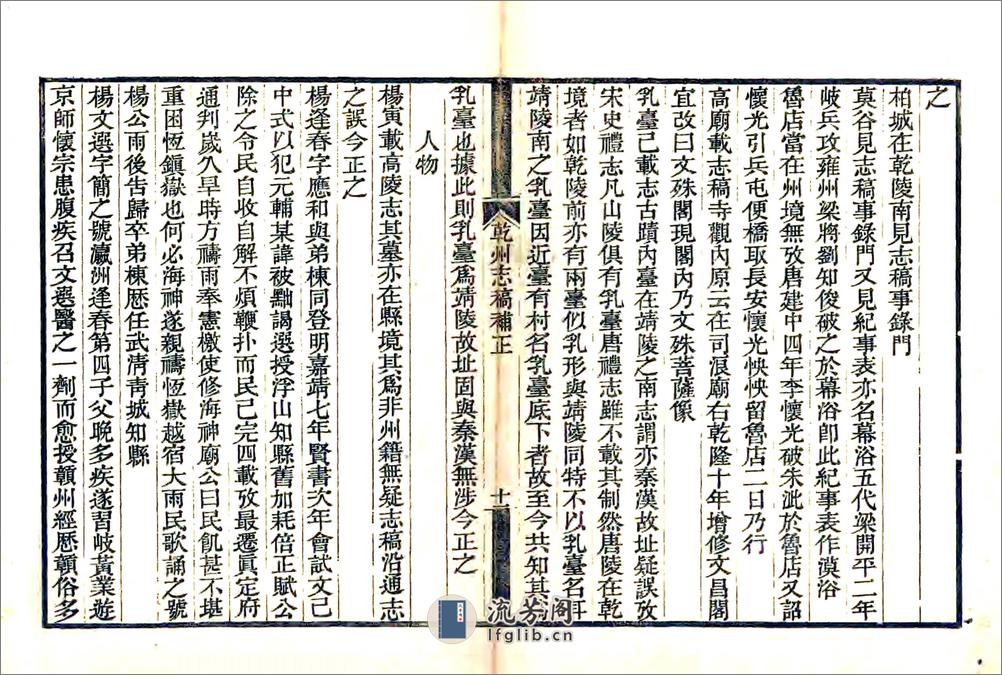 之
柏城在乾陵南見志稿事錄門
莫谷見志稿事錄門又見紀事表亦名幕浴五代梁開平二年
岐兵攻雍州梁將劉知俊破之於幕浴卽此紀事表作漠浴
魯店當在州境無攷唐建中四年李懷光破朱泚於魯店又詔
懷光引兵屯便橋取長安懷光怏怏留魯店二日乃行
高廟載志稿寺觀內原云在司混廟右乾隆十年增修文昌閣
宜改曰文殊閣現閣內乃文殊菩薩像
乳臺已載志古蹟內臺在靖陵之南志謂亦秦漢故址疑誤攷
宋史禮志凡山陵俱有乳臺唐禮志雖不載其制然唐陵在乾
境者如乾陵前亦有兩臺似乳形與靖陵同特不以乳臺名耳
靖陵南之乳臺因近臺有村名乳臺底下者故至今共知其爲
乳臺也據此則乳臺爲靖陵故址固與秦漢無涉今正之
乾州志稿補正
十一
人物
楊寅載高陵志其墓亦在縣境其爲非州籍無疑志稿沿通志
之誤今正之
楊逢春字應和與弟棟同登明嘉靖七年賢書次年會試文已
中式以犯元輔某諱被黜謁選授浮山知縣舊加耗倍正賦公
除之令民自收自解不煩鞭扑而民已完四載攷最遷眞定府
通判歲久旱時方禱雨奉憲檄使修海神廟公曰民飢甚不堪
重困恆鎮嶽也何必海神遂親禱恆嶽越宿大雨民歌誦之號
楊公雨後告歸卒弟棟歷任武淸靑城知縣
楊文選字簡之號瀛洲逢春第四子父晚多疾遂習岐黃業遊
京師懷宗患腹疾召文選醫之一劑而愈授贛州經歷贛俗多
流芳阁
lfglib.cn